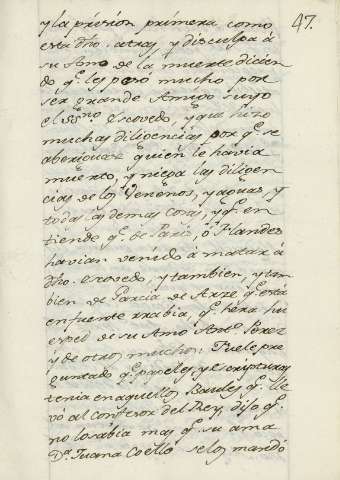 47.
y la presion primera como
esta dho. atras, y disculpa á
su Amo de la muerte dicien
do q.e les pesó mucho por
ser grande Amigo suyo
el Ss.no Escovedo, y que hizo
muchas diligencias por q.e se
aberiguase quien le havia
muerto, y niega las diligen
cias de los Venenos, y aguas, y
todas las demas cosas, y q.e en
tiende q.e de Paris, ó Flandes
havian venido á matar á
dho. escovedo, y tambien, y tam
bien de Garcia de Arze q.e está
en fuente rrabia, q.e hera hu
esped de su Amo Ant.o Perez
y de otros muchos: Fuele pre
guntado q.e papeles, y escripturas
tenia en aquellos Baules q.e lle
vó al confesor del Rey, dijo q.e
no lo sabia mas q.e su ama
D.a Juana Coello se los mandó